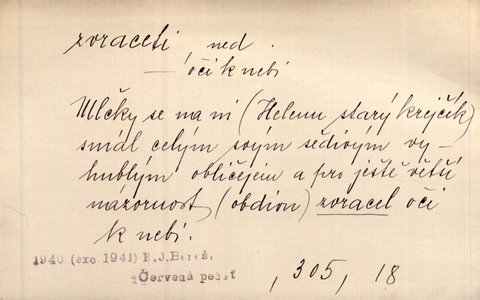 zvraceti, ned.
— oči k nebi
Mlčky se na ni (Helenu starý krejčík)
smál celým svým šedivým vy-
hublým obličejem a pro ještě větší
názornost (obdiou) zvracel oči
k nebi.
1940 (exc 1941) E.J.
Červená pečeť
, 305, 18